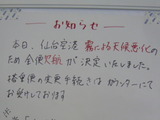 お知らせ
本日、仙台空港 霧による天候悪化の
ため全便欠航が決定いたしました。
搭乗便の変更手続きはカウンターにて
お受けしております